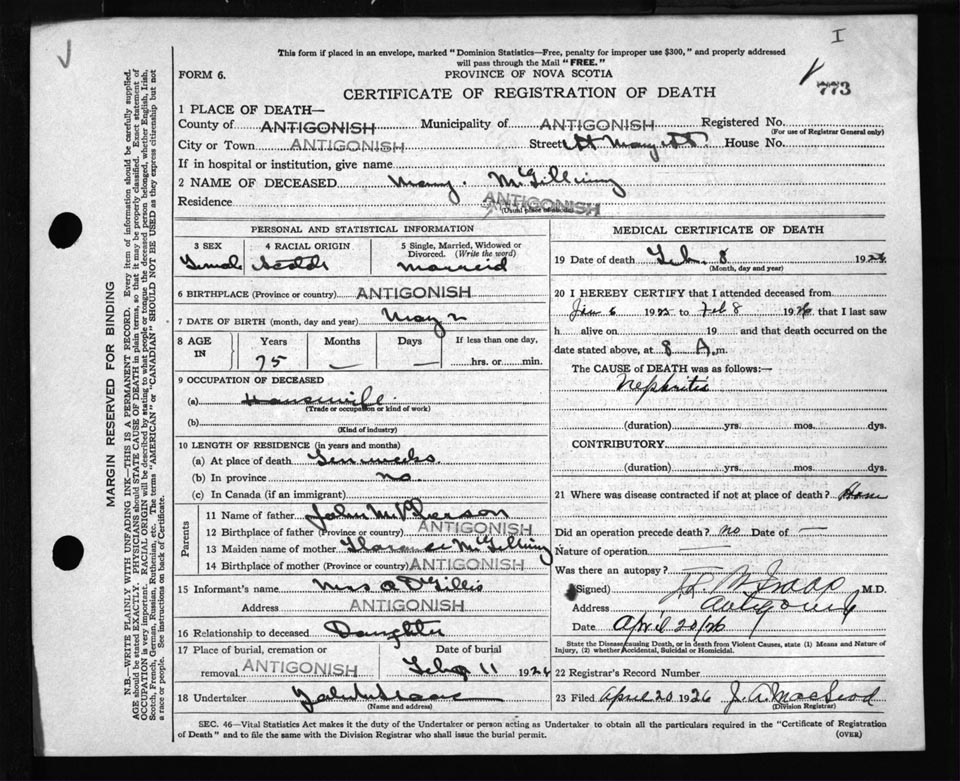 I
This form if placed in an envelope, marked "Dominion Statistics—Free, penalty for improper use $300," and properly addressed
will pass through the Mail "FREE."
FORM 6.
PROVINCE OF NOVA SCOTIA
773
CERTIFICATE OF REGISTRATION OF DEATH
1 PLACE OF DEATH—
County of ANTIGONISH Municipality of ANTIGONISH Registered No.
(For use of Registrar General only)
City or Town ANTIGONISH Street St Mary St. House No.
If in hospital or institution, give name
2 NAME OF DECEASED Mary. McGillivray
Residence ANTIGONISH
(Usual place of abode)
PERSONAL AND STATISTICAL INFORMATION
3 SEX 4 RACIAL ORIGIN 5 Single, Married, Widowed or Divorced. (Write the word)
Female Scotch Married
6 BIRTHPLACE (Province or country) ANTIGONISH
7 DATE OF BIRTH (month, day and year) May
8 AGE IN Years Months Days If less than one day,
75 — — hrs. or min.
9 OCCUPATION OF DECEASED
(a) Housewife
(Trade or occupation or kind of work)
(b)
(Kind of industry)
10 LENGTH OF RESIDENCE (in years and months)
(a) At place of death
(b) In province no
(c) In Canada (if an immigrant)
Parents
11 Name of father John McPherson
12 Birthplace of father (Province or country) ANTIGONISH
13 Maiden name of mother
14 Birthplace of mother (Province or country) ANTIGONISH
15 Informant's name Mrs A D Gillis
Address ANTIGONISH
16 Relationship to deceased Daughter
17 Place of burial, cremation or removal ANTIGONISH Date of burial Feb 11 1926
18 Undertaker
(Name and address)
MEDICAL CERTIFICATE OF DEATH
19 Date of death Feb. 8 1926
(Month, day and year)
20 I HEREBY CERTIFY that I attended deceased from
Jan 6 1925 to Feb 8 1926 that I last saw
h alive on 19 and that death occurred on
date stated above, at 8 A.m.
The CAUSE of DEATH was as follows:—
Nephritis
(duration) yrs. mos. dys.
CONTRIBUTORY
(duration) yrs. mos. dys.
21 Where was disease contracted if not at place of death? Home
Did an operation precede death? no Date of —
Nature of operation —
Was there an autopsy?
(Signed) M.D.
Address Antigonish
Date April 20/26
State the Disease causing Death, or in death from Violent Causes, state (1) Means and Nature of
Injury, (2) whether Accidental, Suicidal or Homicidal.
22 Registrar's Record Number
23 Filed April 20 1926 J. A. MacLeod
(Division Registrar)
SEC. 46—Vital Statistics Act makes it the duty of the Undertaker or person acting as Undertaker to obtain all the particulars required in the "Certificate of Registration
of Death" and to file the same with the Division Registrar who shall issue the burial permit. (OVER)
MARGIN RESERVED FOR BINDING
N.B.—WRITE PLAINLY WITH UNFADING INK—THIS IS A PERMANENT RECORD. Every item of information should be carefully supplied.
AGE should be stated EXACTLY. PHYSICIANS should STATE CAUSE OF DEATH in plain terms, so that it may be properly classified. Exact statement of
OCCUPATION is very important. RACIAL ORIGIN will be described by stating to what people or tongue the deceased person belonged, whether English, Irish,
Scotch, French, German, Russian, Ruthenian, etc. The terms "AMERICAN" or "CANADIAN" SHOULD NOT BE USED as they express citizenship but not
a race or people. See instructions on back of Certificate.